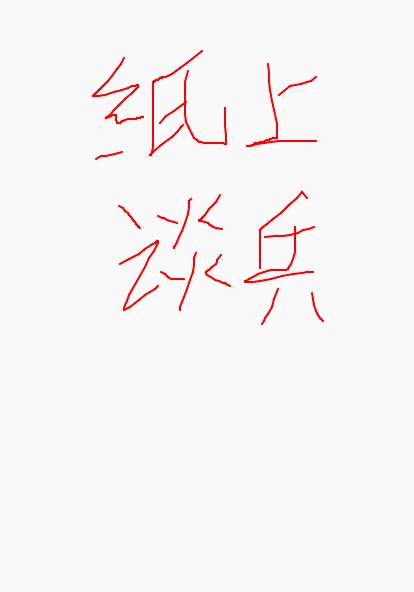 纸上
谈兵